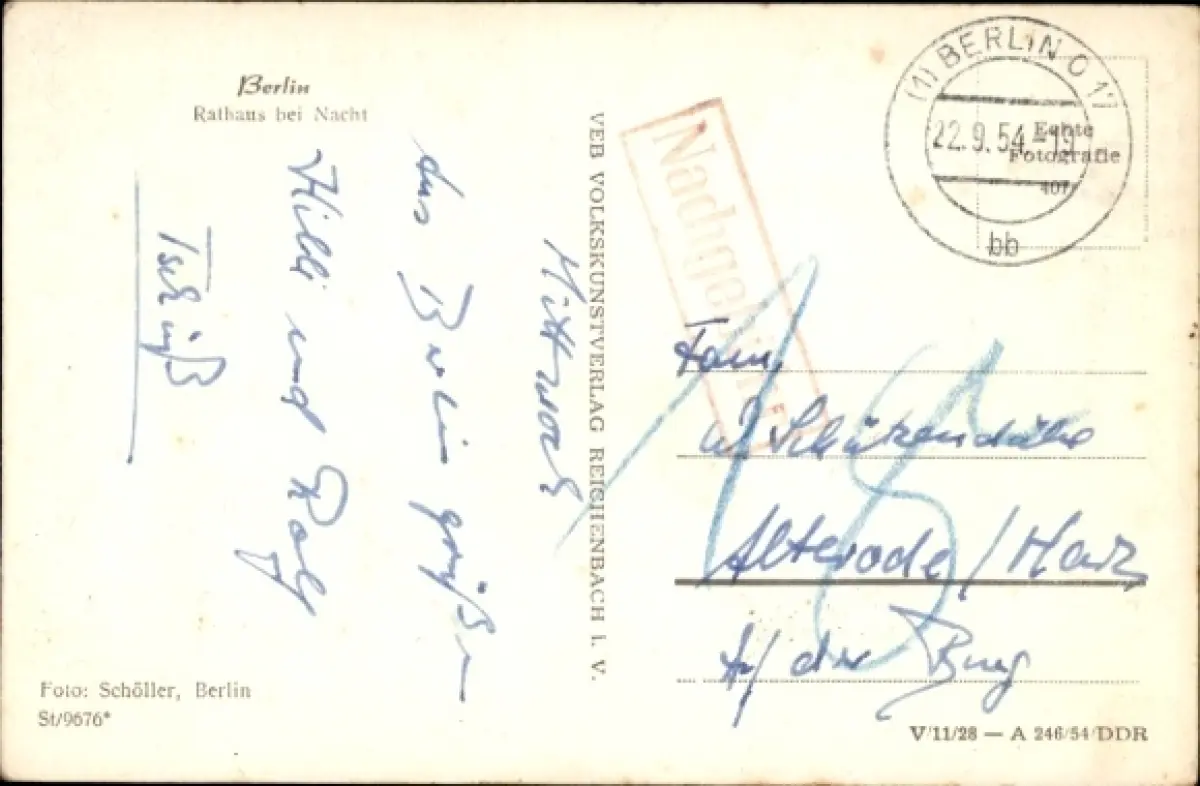 Berlin
Rathaus bei Nacht
Mittwoch
Aus Berlin grüßen
Hilli und Rolf
Tschüß
Foto: Schöller, Berlin
St/9676*
VEB VOLKSKUNSTVERLAG REICHENBACH i. V.
Nachgebühr
(1) BERLIN O 17
22.9.54-19
bb
Echte
Fotografie
407
Fam.
Alterode/Harz
Auf der Burg
V/11/28 — A 246/54/DDR